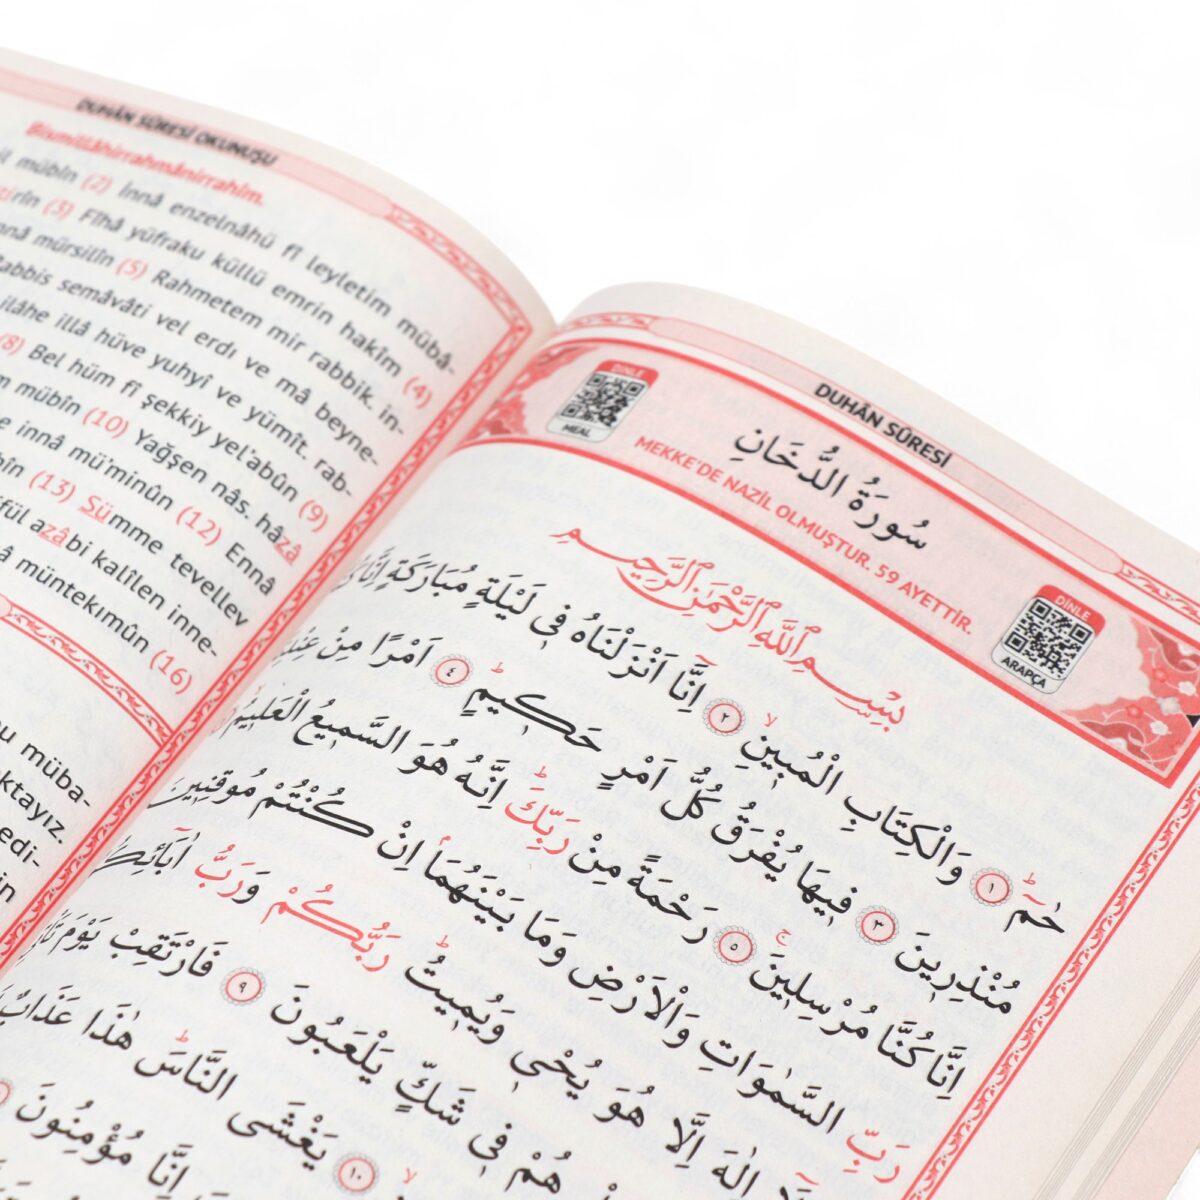 DUHÂN SÛRESİ OKUNUŞU
Bismillâhirrahmânirrahîm.
mübîn (2) İnnâ enzelnâhü fî leyletim mübâ-
(3) Fîhâ yüfraku küllü emrin hakîm (4)
mürsilîn (5) Rahmetem mir rabbik. in-
semâvâti vel erdı ve mâ beyne-
ilâhe illâ hüve yuhyî ve yümît. rab-
(8) Bel hüm fî şekkiy yel'abûn (9)
mübîn (10) Yağşen nâs. hâzâ
innâ mü'minûn (12) Ennâ
(13) Sümme tevellev
azâbi kalîlen inne-
müntekımûn (16)
müba-
DUHÂN SÛRESİ
DİNLE
MEAL
سُورَةُ الدُّخَانِ
MEKKE'DE NAZİL OLMUŞTUR. 59 AYETTİR.
DİNLE
ARAPÇA
بِسْمِ اللّٰهِ الرَّحْمٰنِ الرَّحِيمِ
حٰمٓ ۚ ١ وَالْكِتَابِ الْمُبِينِ ۙ ٢ اِنَّٓا اَنْزَلْنَاهُ فِى لَيْلَةٍ مُبَارَكَةٍ اِنَّا
مُنْذِرِينَ ٣ فِيهَا يُفْرَقُ كُلُّ اَمْرٍ حَكِيمٍ ۚ ٤ اَمْرًا مِنْ
اِنَّا كُنَّا مُرْسِلِينَ ۚ ٥ رَحْمَةً مِنْ رَبِّكَ ۜ اِنَّهُ هُوَ السَّمِيعُ الْعَلِيمُ
رَبِّ السَّمٰوَاتِ وَالْاَرْضِ وَمَا بَيْنَهُمَا ۢ اِنْ كُنْتُمْ مُوقِنِينَ
اِلٰهَ اِلَّا هُوَ يُحْىِ وَيُمِيتُ ۜ رَبُّكُمْ وَرَبُّ اٰبَٓائِكُمُ
هُمْ فِى شَكٍّ يَلْعَبُونَ ٩ فَارْتَقِبْ يَوْمَ
١٠ يَغْشَى النَّاسَ ۜ هٰذَا عَذَابٌ
اِنَّا مُؤْمِنُونَ